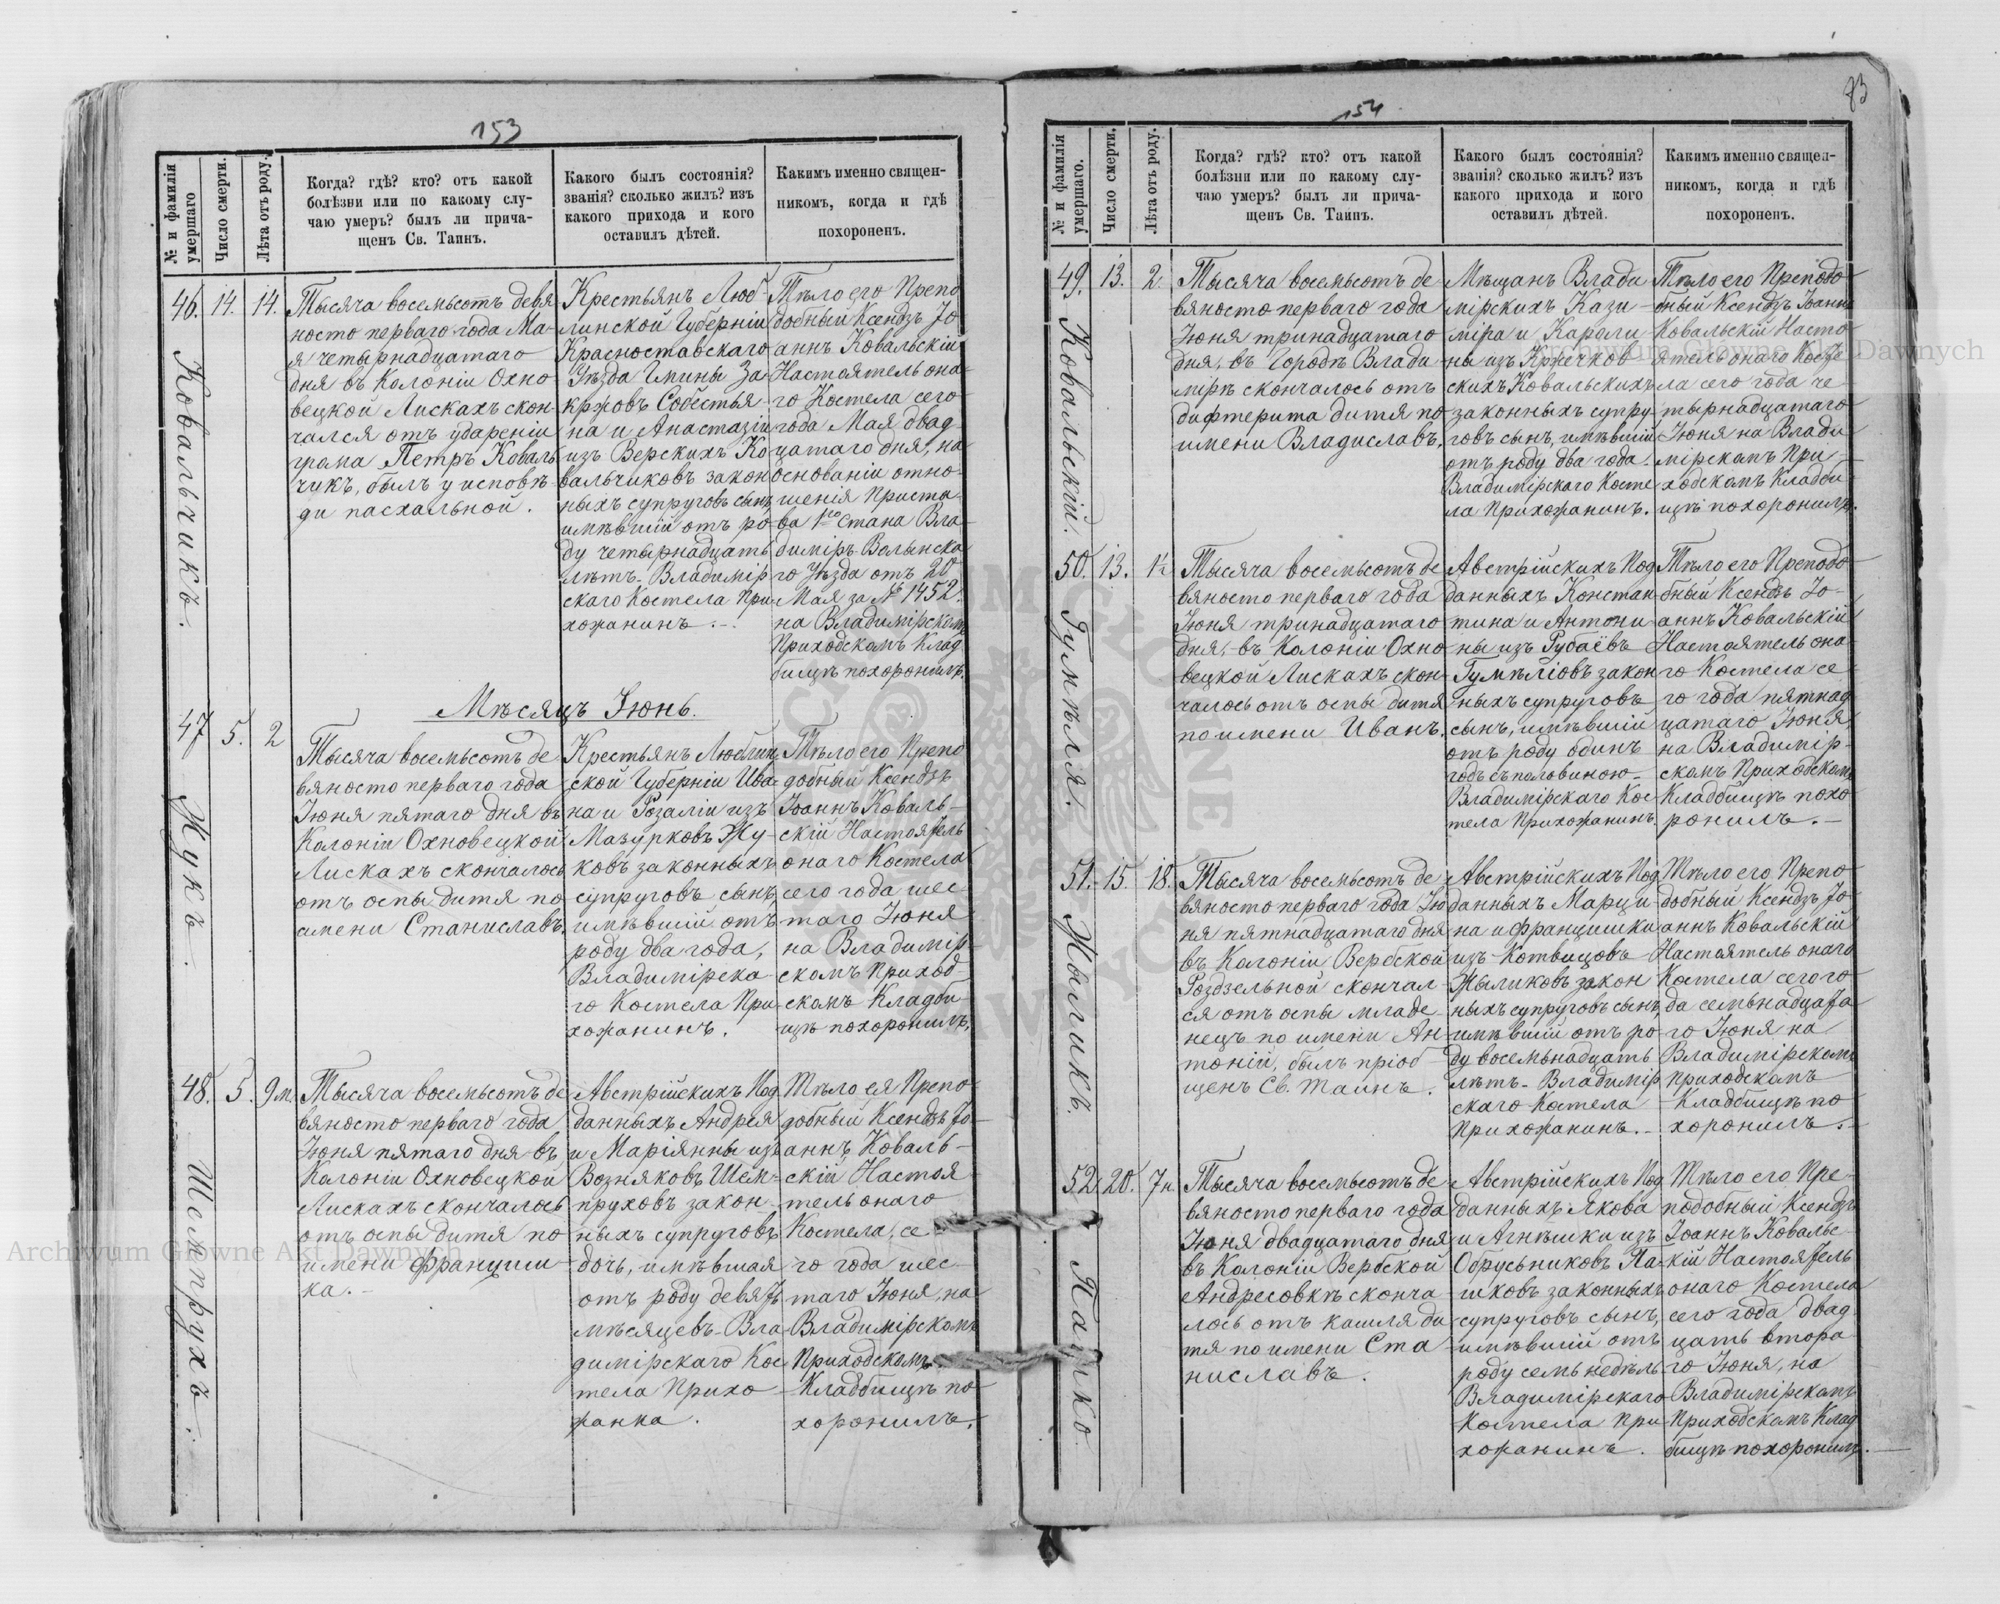 153
№ и фамилія умершаго
Число смерти.
Лѣта отъ роду.
Когда? гдѣ? кто? отъ какой
болѣзни или по какому слу-
чаю умеръ? былъ ли прича-
щенъ Св. Таинъ.
Какого былъ состоянія?
званія? сколько жилъ? изъ
какого прихода и кого
оставилъ дѣтей.
Какимъ именно священ-
никомъ, когда и гдѣ
похороненъ.
46.
Ковальчикъ.
14.
14.
Тысяча восемьсотъ девя
носто перваго года Ма-
я четырнадцатаго
дня въ Колоніи Охно
вецкой Лискахъ скон-
чался отъ удареніи
грома Петръ Коваль
чукъ, былъ у исповѣ
ди пасхальной.
Крестьянъ Люб
линской Губерніи
Красноставскаго
Уѣзда Гмины За
кржовъ Собестья
на и Анастазіи
изъ Верскихъ Ко
вальчиковъ закон
ныхъ супруговъ сынъ
имѣвшій отъ ро-
ду четырнадцать
лѣтъ. Владимір
скаго Костела При-
хожанинъ.
Тѣло его Препо
добный Ксендзъ Іо
аннъ Ковальскій
Настоятель она-
го Костела сего
года Мая двад
цатаго дня, на
основаніи отно-
шенія Приста-
ва 1го Стана Вла-
димір-Волынска
го Уѣзда отъ 20
Мая за № 1452.
на Владимірскомъ
Приходскомъ Клад
бищѣ похоронилъ.
Мѣсяцъ Іюнь.
47
Жукъ.
5.
2
Тысяча восемьсотъ де-
вяносто перваго года
Іюня пятаго дня въ
Колоніи Охновецкой
Лискахъ скончалось
отъ оспы дитя по
имени Станиславъ.
Крестьянъ Люблин
ской Губерніи Ива-
на и Розаліи изъ
Мазурковъ Жу-
ковъ законныхъ
супруговъ сынъ,
имѣвшій отъ
роду два года,
Владимірска-
го Костела При-
хожанинъ.
Тѣло его Препо
добный Ксендзъ
Іоаннъ Коваль-
скій Настоятель
онаго Костела
сего года шес
таго Іюня
на Владимір-
скомъ Приход-
скомъ Кладби-
щѣ похоронилъ.
48.
Шемпрухъ.
5.
9 м.
Тысяча восемьсотъ де
вяносто перваго года
Іюня пятаго дня въ
Колоніи Охновецкой
Лискахъ скончалось
отъ оспы дитя по
имени Францишка.
Австрійскихъ Под
данныхъ Андрея
и Маріянны изъ
Возняковъ Шем-
пруховъ закон-
ныхъ супруговъ
дочь, имѣвшая
отъ роду девять
мѣсяцевъ. Вла
димірскаго Кос
тела Прихо
жанка.
Тѣло ея Препо-
добный Ксендзъ Іо-
аннъ Коваль-
скій Настоя
тель онаго
Костела, се
го года шес
таго Іюня, на
Владимірскомъ
Приходскомъ
Кладбищѣ по-
хоронилъ.
154
83
№ и фамилія умершаго.
Число смерти.
Лѣта отъ роду.
Когда? гдѣ? кто? отъ какой
болѣзни или по какому слу-
чаю умеръ? былъ ли прича-
щенъ Св. Таинъ.
Какого былъ состоянія?
званія? сколько жилъ? изъ
какого прихода и кого
оставилъ дѣтей.
Какимъ именно священ-
никомъ, когда и гдѣ
похороненъ.
49.
Ковальскій.
13.
2.
Тысяча восемьсотъ де
вяносто перваго года
Іюня тринадцатаго
дня, въ Городѣ Влади
мірѣ скончалось отъ
дифтерита дитя по
имени Владиславъ.
Мѣщанъ Влади
мірскихъ Кази-
міра и Кароли-
ны изъ Кржечков
скихъ Ковальскихъ
законныхъ супру-
говъ сынъ, имѣвшій
отъ роду два года.
Владимірскаго Косте
ла Прихожанинъ.
Тѣло его Преподо
бный Ксендзъ Іоаннъ
Ковальскій Насто
ятель онаго Косте
ла сего года че
тырнадцатаго
Іюня на Влади
мірскомъ При
ходскомъ Кладби
щѣ похоронилъ.
50.
Гумѣля.
13.
1½
Тысяча восемьсотъ де
вяносто перваго года
Іюня тринадцатаго
дня, въ Колоніи Охно
вецкой Лискахъ скон-
чалось отъ оспы дитя
по имени Иванъ.
Австрійскихъ Под
данныхъ Констан
тина и Антони
ны изъ Рубаёвъ
Гумѣліовъ закон
ныхъ супруговъ
сынъ, имѣвшій
отъ роду одинъ
годъ съ половиною.
Владимірскаго Кос-
тела Прихожанинъ.
Тѣло его Преподо
бный Ксендзъ Іо-
аннъ Ковальскій
Настоятель она
го Костела се
го года пятнад
цатаго Іюня
на Владимір-
скомъ Приходскомъ
Кладбищѣ похо
ронилъ.
51.
Жыликъ.
15.
18.
Тысяча восемьсотъ де
вяносто перваго года Ію
ня пятнадцатаго дня
въ Колоніи Вербской
Роздзельной скончал
ся отъ оспы младе
нецъ по имени Ан
тоній, былъ пріоб
щенъ Св. Таинъ.
Австрійскихъ Под
данныхъ Марци
на и Францишки
изъ Котвицовъ
Жыликовъ закон
ныхъ супруговъ сынъ,
имѣвшій отъ ро
ду восемьнадцать
лѣтъ. Владимір
скаго Костела
Прихожанинъ.
Тѣло его Препо
добный Ксендзъ Іо
аннъ Ковальскій
Настоятель онаго
Костела сего го
да семьнадцата
го Іюня на
Владимірскомъ
Приходскомъ
Кладбищѣ по
хоронилъ.
52.
Пашко.
20.
7 н.
Тысяча восемьсотъ де
вяносто перваго года
Іюня двадцатаго дня
въ Колоніи Вербской
Андресовкѣ сконча
лось отъ кашля ди
тя по имени Ста
ниславъ.
Австрійскихъ Под
данныхъ Якова
и Агнѣшки изъ
Обрусьниковъ Па
шковъ законныхъ
супруговъ сынъ,
имѣвшій отъ
роду семь недѣль
Владимірскаго
Костела При
хожанинъ.
Тѣло его Пре-
подобный Ксендзъ
Іоаннъ Ковальс-
кій Настоятель
онаго Костела
сего года двад
цать втора
го Іюня, на
Владимірскомъ
Приходскомъ Клад
бищѣ похоронилъ.
Archiwum Główne Akt Dawnych